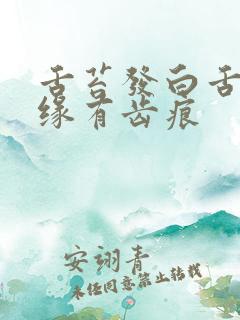 舌苔發白舌
缘有齿痕
安翊青
未经同意禁止转载